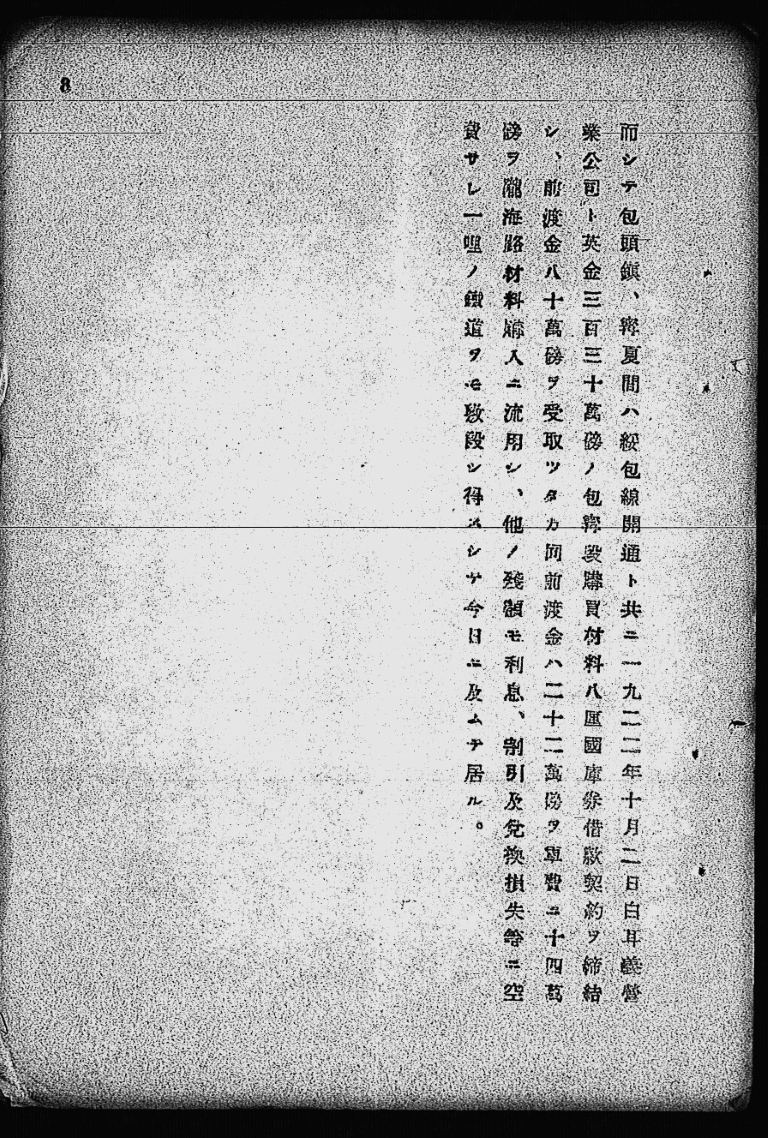 8
而シテ包頭鎭、寗夏間ハ綏包線開通ト共ニ一九二二年十月二日白耳義營
業公司ト英金三百三十萬磅ノ包寗段購買材料八厘國庫券借款契約ヲ締結
シ、前渡金八十萬磅ヲ受取ツタカ同前渡金ハ二十二萬磅ヲ軍費ニ十四萬
磅ヲ隴海路材料購入ニ流用シ、他ノ殘額モ利息、割引及兌換損失等ニ空
費サレ一哩ノ鐵道ヲモ敷段シ得スシテ今日ニ及ムテ居ル。